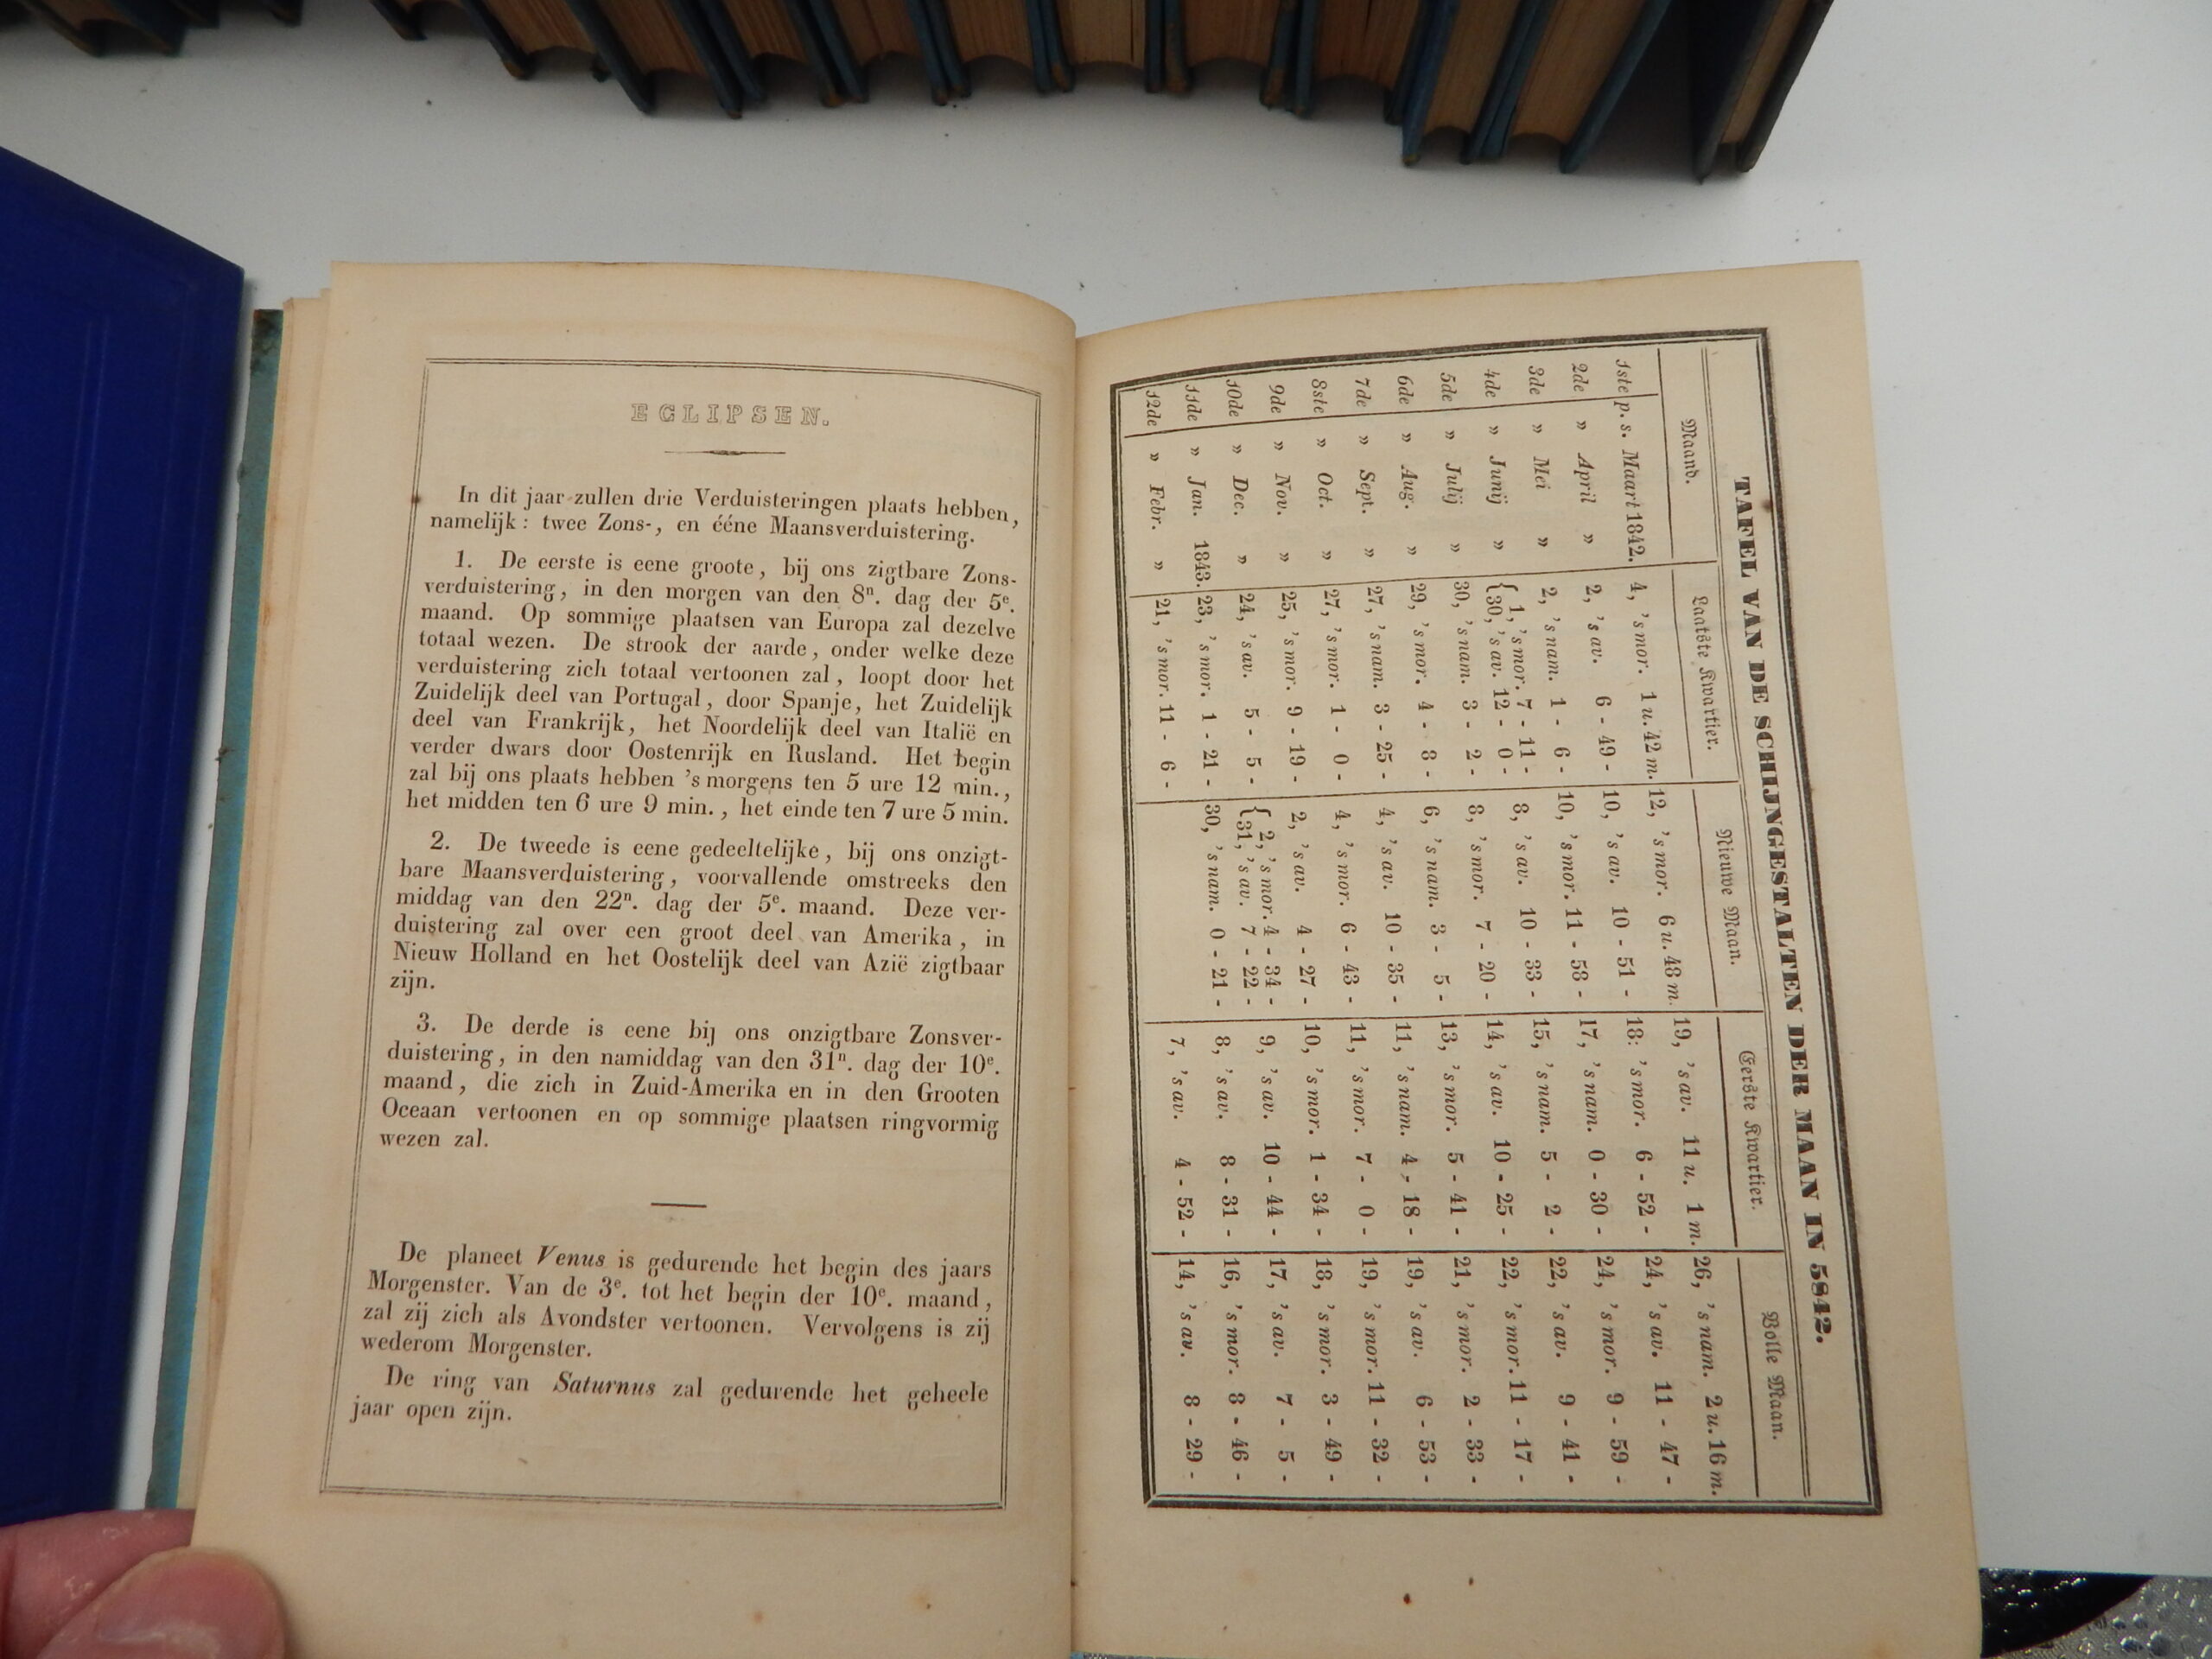 ECLIPSEN.
In dit jaar zullen drie Verduisteringen plaats hebben,
namelijk: twee Zons-, en ééne Maansverduistering.
1. De eerste is eene groote, bij ons zigtbare Zons-
verduistering, in den morgen van den 8n. dag der 5e.
maand. Op sommige plaatsen van Europa zal dezelve
totaal wezen. De strook der aarde, onder welke deze
verduistering zich totaal vertoonen zal, loopt door het
Zuidelijk deel van Portugal, door Spanje, het Zuidelijk
deel van Frankrijk, het Noordelijk deel van Italië en
verder dwars door Oostenrijk en Rusland. Het begin
zal bij ons plaats hebben 's morgens ten 5 ure 12 min.,
het midden ten 6 ure 9 min., het einde ten 7 ure 5 min.
2. De tweede is eene gedeeltelijke, bij ons onzigt-
bare Maansverduistering, voorvallende omstreeks den
middag van den 22n. dag der 5e. maand. Deze ver-
duistering zal over een groot deel van Amerika, in
Nieuw Holland en het Oostelijk deel van Azië zigtbaar
zijn.
3. De derde is eene bij ons onzigtbare Zonsver-
duistering, in den namiddag van den 31n. dag der 10e.
maand, die zich in Zuid-Amerika en in den Grooten
Oceaan vertoonen en op sommige plaatsen ringvormig
wezen zal.
De planeet Venus is gedurende het begin des jaars
Morgenster. Van de 3e. tot het begin der 10e. maand,
zal zij zich als Avondster vertoonen. Vervolgens is zij
wederom Morgenster.
De ring van Saturnus zal gedurende het geheele
jaar open zijn.
TAFEL VAN DE SCHIJNGESTALTEN DER MAAN IN 5842.
Maand. Laatste Kwartier. Nieuwe Maan. Eerste Kwartier. Volle Maan.
1ste p. s. Maart 1842. 4, 's mor. 1 u. 42 m. 12, 's mor. 6 u. 48 m. 19, 's av. 11 u. 1 m. 26, 's nam. 2 u. 16 m.
2de » April » 2, 's av. 6 - 49 - 10, 's av. 10 - 51 - 18: 's mor. 6 - 52 - 24, 's av. 11 - 47 -
3de » Mei » 2, 's nam. 1 - 6 - 10, 's mor. 11 - 58 - 17, 's nam. 0 - 30 - 24, 's mor. 9 - 59 -
4de » Junij » { 1, 's mor. 7 - 11 - 8, 's av. 10 - 33 - 15, 's nam. 5 - 2 - 22, 's av. 9 - 41 -
{ 30, 's av. 12 - 0 -
5de » Julij » 30, 's nam. 3 - 2 - 8, 's mor. 7 - 20 - 14, 's av. 10 - 25 - 22, 's mor. 11 - 17 -
6de » Aug. » 29, 's mor. 4 - 8 - 6, 's nam. 3 - 5 - 13, 's mor. 5 - 41 - 21, 's mor. 2 - 33 -
7de » Sept. » 27, 's nam. 3 - 25 - 4, 's av. 10 - 35 - 11, 's nam. 4 - 18 - 19, 's av. 6 - 53 -
8ste » Oct. » 27, 's mor. 1 - 0 - 4, 's mor. 6 - 43 - 11, 's mor. 7 - 0 - 19, 's mor. 11 - 32 -
9de » Nov. » 25, 's mor. 9 - 19 - 2, 's av. 4 - 27 - 10, 's mor. 1 - 34 - 18, 's mor. 3 - 49 -
10de » Dec. » 24, 's av. 5 - 5 - { 2, 's mor. 4 - 34 - 9, 's av. 10 - 44 - 17, 's av. 7 - 5 -
{ 31, 's av. 7 - 22 -
11de » Jan. 1843. 23, 's mor. 1 - 21 - 30, 's nam. 0 - 21 - 8, 's av. 8 - 31 - 16, 's mor. 8 - 46 -
12de » Febr. » 21, 's mor. 11 - 6 - 7, 's av. 4 - 52 - 14, 's av. 8 - 29 -